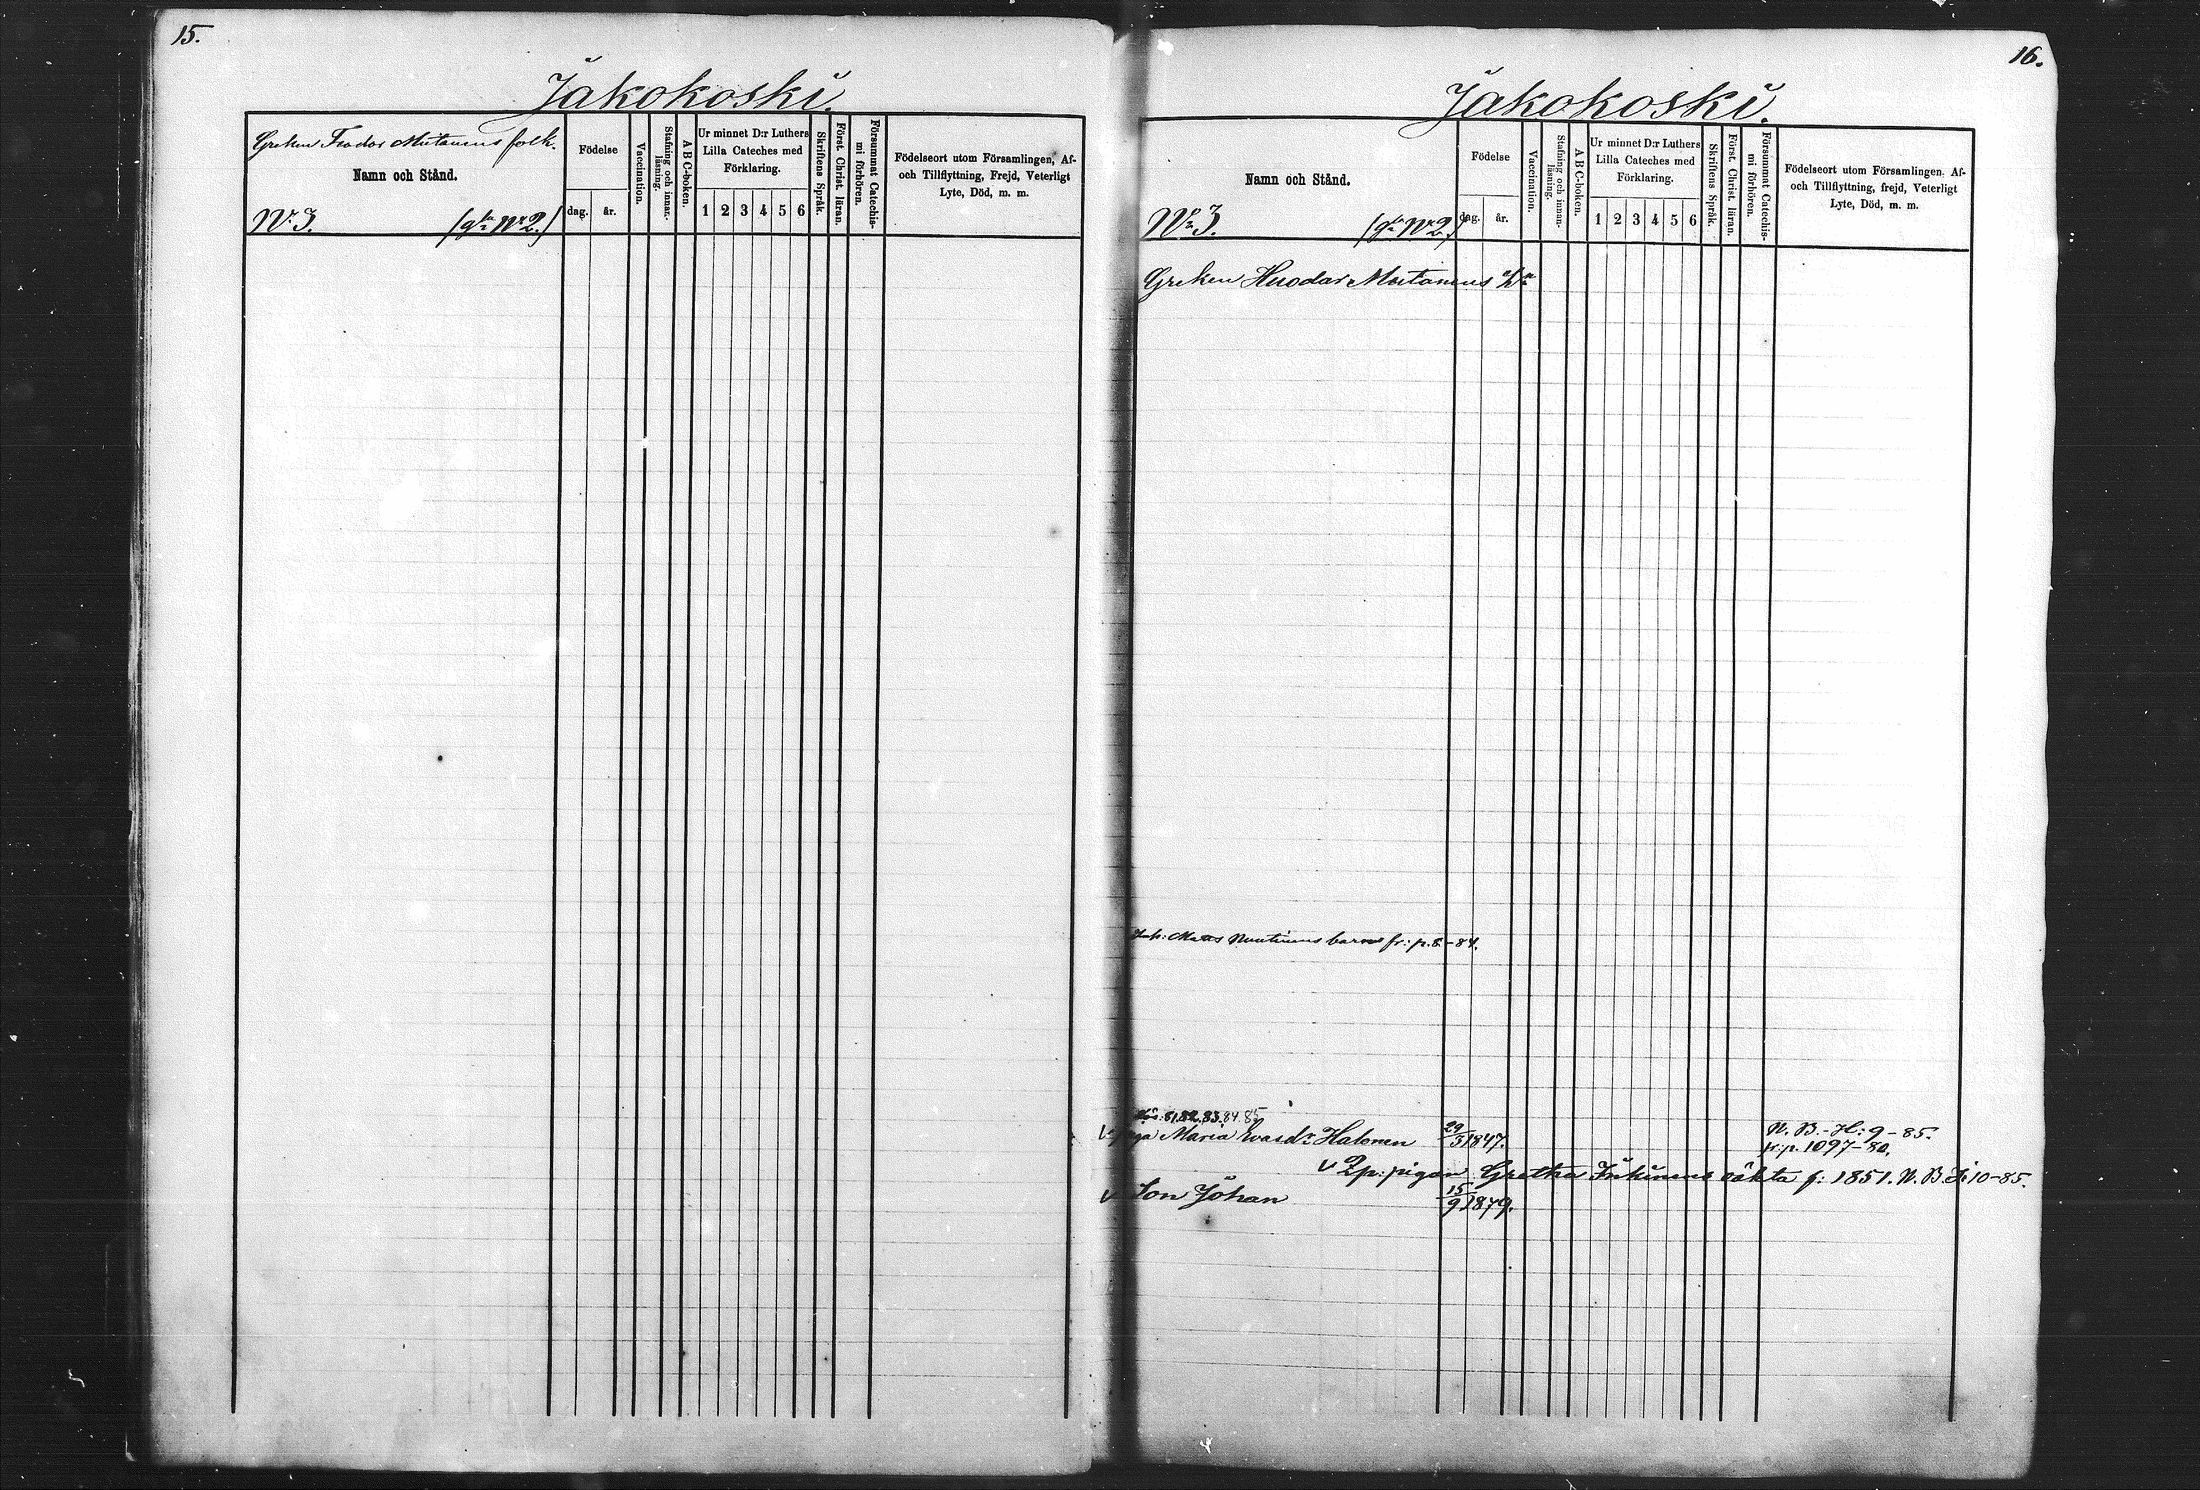 15.
Jakokoski.
Greken Feodor Mutanens folk.
Namn och Stånd.
Nr 3. (gla Nr 2.)
Födelse
dag. år.
Vaccination.
Stafning och innan-
läsning.
A B C-boken.
Ur minnet D:r Luthers
Lilla Cateches med
Förklaring.
1 2 3 4 5 6
Skriftens Språk.
Först. Christ. läran.
Försummat Catechis-
mi förhören.
Födelseort utom Församlingen, Af-
och Tillflyttning, Frejd, Veterligt
Lyte, Död, m. m.
16.
Jakokoski.
Namn och Stånd.
No 3. (gla No 2.)
Födelse
dag. år.
Vaccination.
Stafning och innan-
läsning.
A B C-boken.
Ur minnet D:r Luthers
Lilla Cateches med
Förklaring.
1 2 3 4 5 6
Skriftens Språk.
Först. Christ. läran.
Försummat Catechis-
mi förhören.
Födelseort utom Församlingen, Af-
och Tillflyttning, frejd, Veterligt
Lyte, Död, m. m.
Greken Mutanens
barn fr: p. 8-84.
81.82.83.84.85
Maria Halonen 29/3 1847. N. B.-H: 9-85.
fr: p. 1097-80.
pigan Gretha oäkta f: 1851. N. B. 10-85.
Son Johan 15/9 1879.